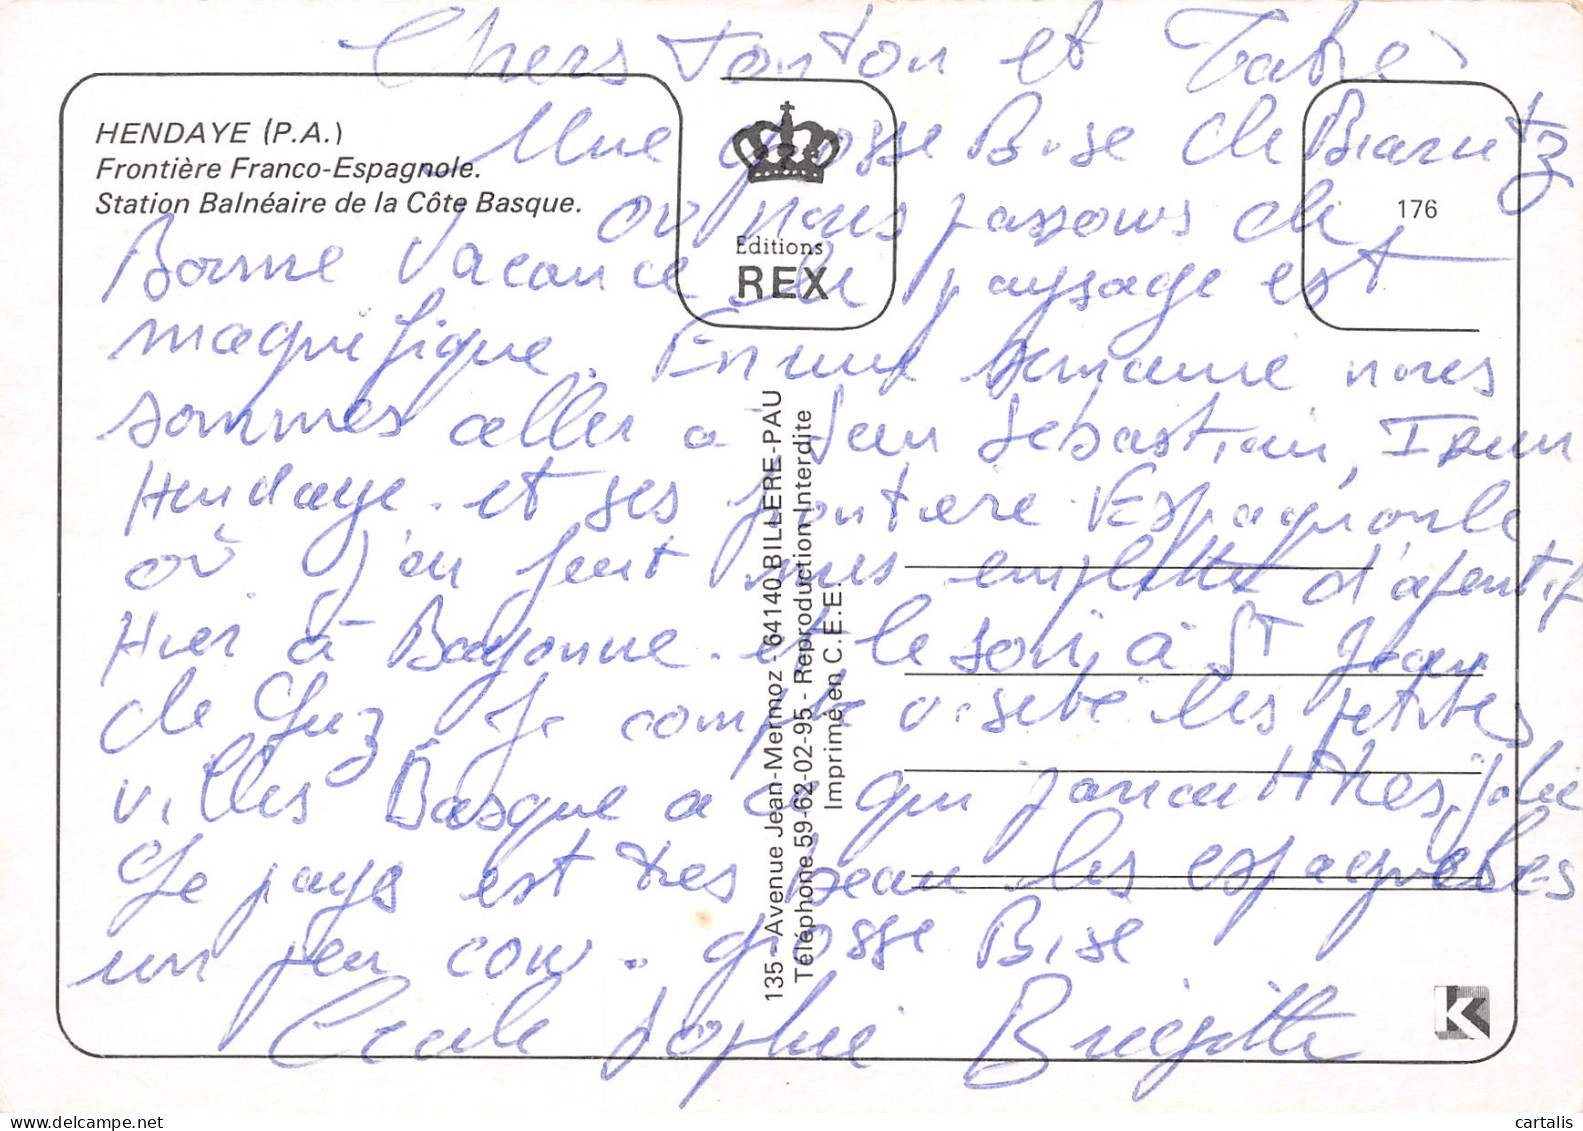 Chers Tonton et Tatie
HENDAYE (P.A.)
Frontière Franco-Espagnole.
Station Balnéaire de la Côte Basque.
Editions
REX
176
Une grosse Bise de Biarritz
où nous passons de
Bonne Vacance le paysage est
magnifique. En une semaine nous
sommes aller à San Sebastian, Irun
Hendaye. et ses frontiere Espagnole
où j'en fait mes emplette d'aperitif
Hier à Bayonne. et le soir, à St Jean
de Luz je compte visité les petites
villes Basque a ce qui jarait tres jolie
Le pays est tres beau les espagnoles
un peu con. grosse Bise
Cecile Sophie Brigitte
135 - Avenue Jean-Mermoz - 64140 BILLERE-PAU
Téléphone 59-62-02-95 - Reproduction Interdite
Imprimé en C.E.E.
K
delcampe.net
cartalis